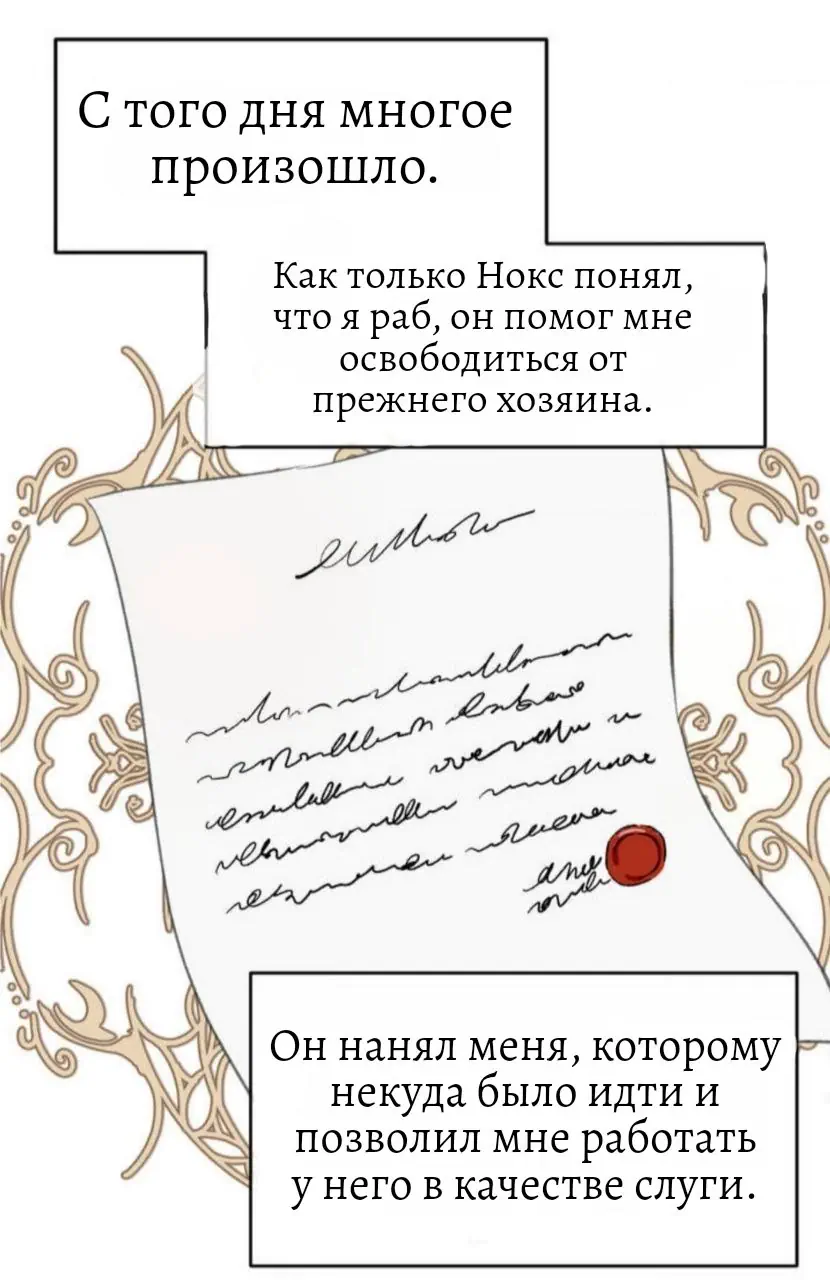 С того дня многое
произошло.
Как только Нокс понял,
что я раб, он помог мне
освободиться от
прежнего хозяина.
Он нанял меня, которому
некуда было идти и
позволил мне работать
у него в качестве слуги.